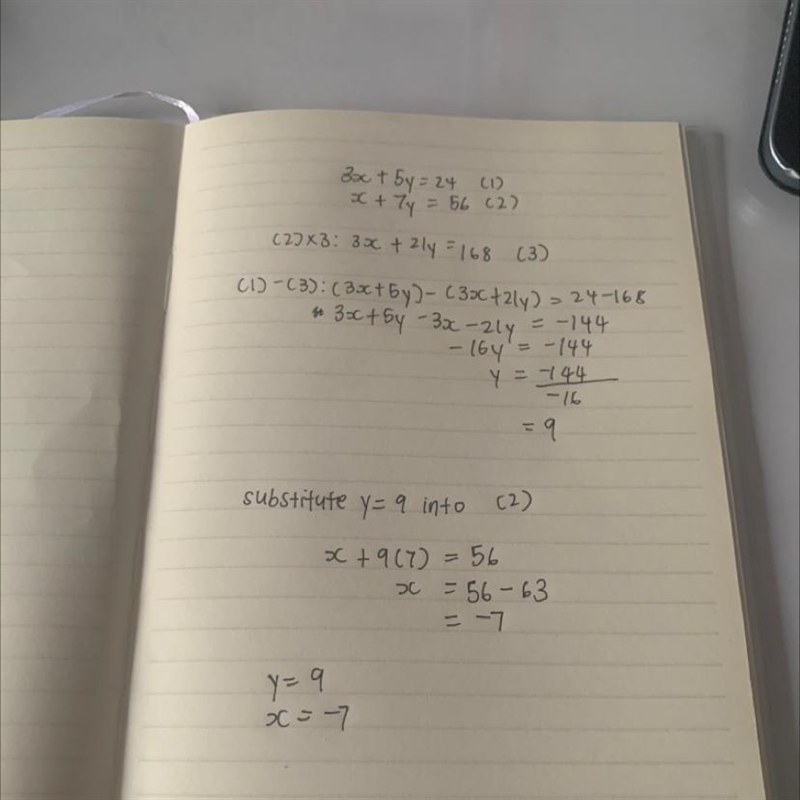 3x + 5y = 24 (1)
x + 7y = 56 (2)
(2)×3: 3x + 21y = 168 (3)
(1)-(3): (3x+5y)-(3x+21y) = 24-168
3x+5y -3x-21y = -144
-16y = -144
y = -144
-16
= 9
substitute y=9 into (2)
x + 9(7) = 56
x = 56 - 63
= -7
y= 9
x = -7